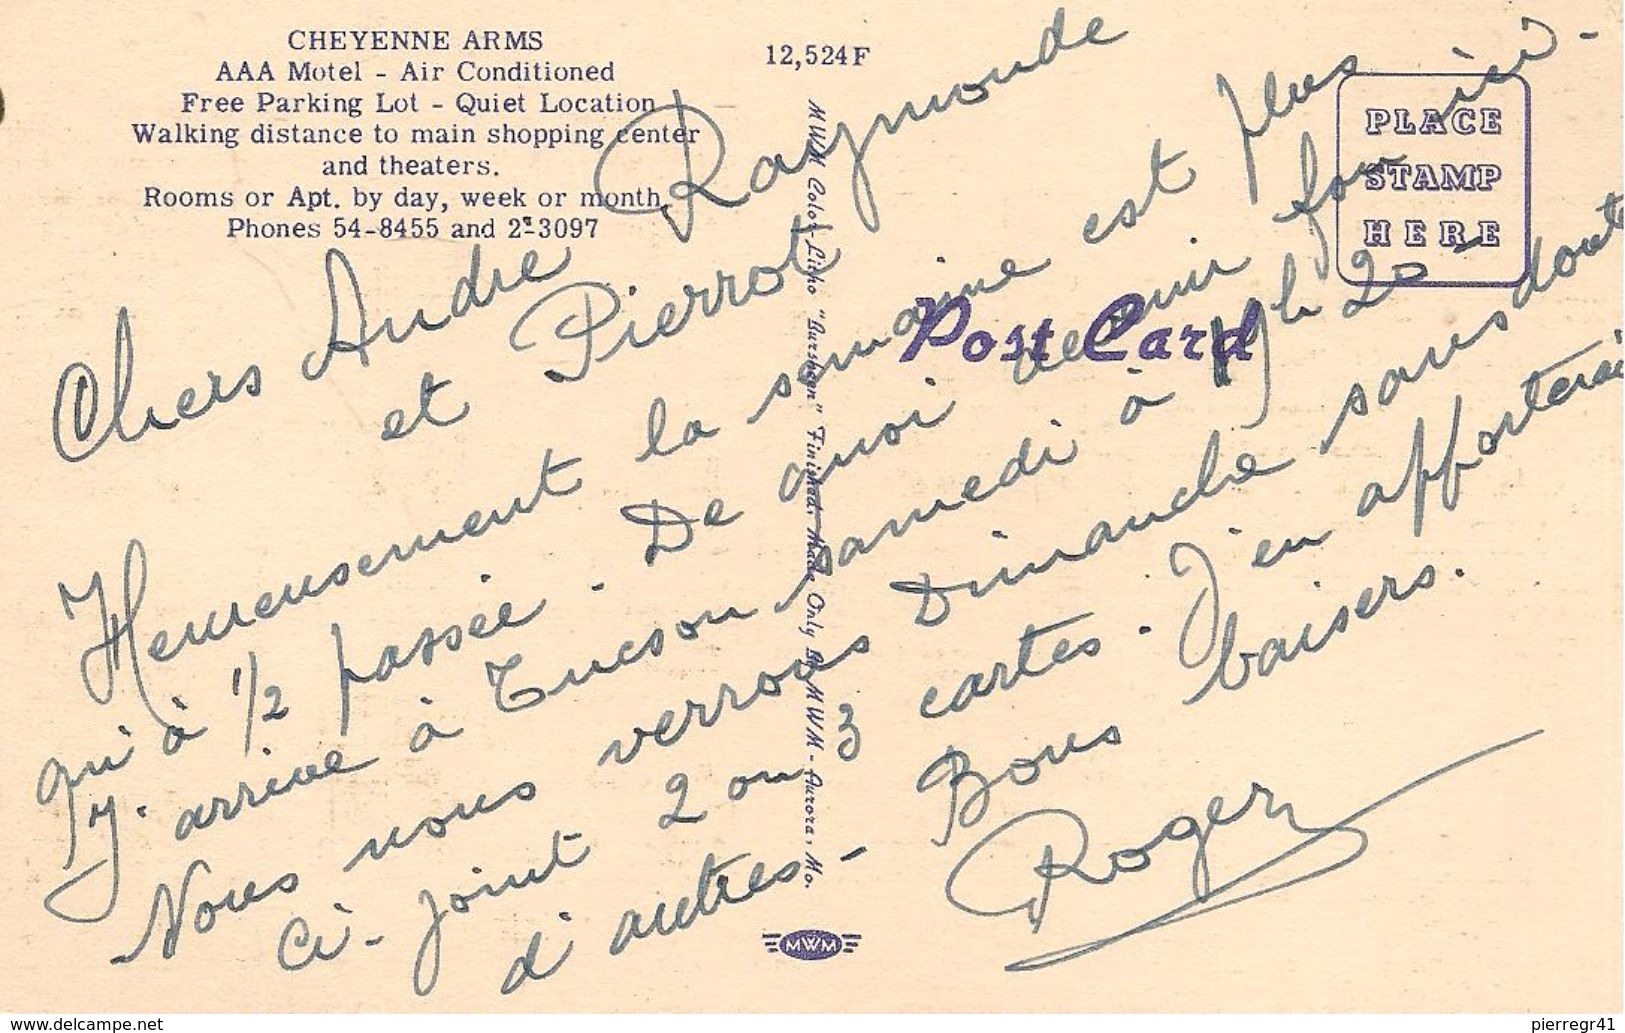 CHEYENNE ARMS
AAA Motel - Air Conditioned
Free Parking Lot - Quiet Location
Walking distance to main shopping center
and theaters.
Rooms or Apt. by day, week or month.
Phones 54-8455 and 2-3097
12,524F
PLACE
STAMP
HERE
Post Card
MWM Color-Litho "Burshean" Finished. Made Only By MWM - Aurora, Mo.
MWM
Chers André Raymonde
et Pierrot
Heureusement la semaine est plus
qu'à 1/2 passée. De quoi devenir fou ici -
J'arrive à Tucson samedi à 19h 20 -
Nous nous verrons Dimanche sans doute
Ci-joint 2 ou 3 cartes. J'en apporterai
d'autres - Bons baisers.
Roger
pierregr41
www.delcampe.net